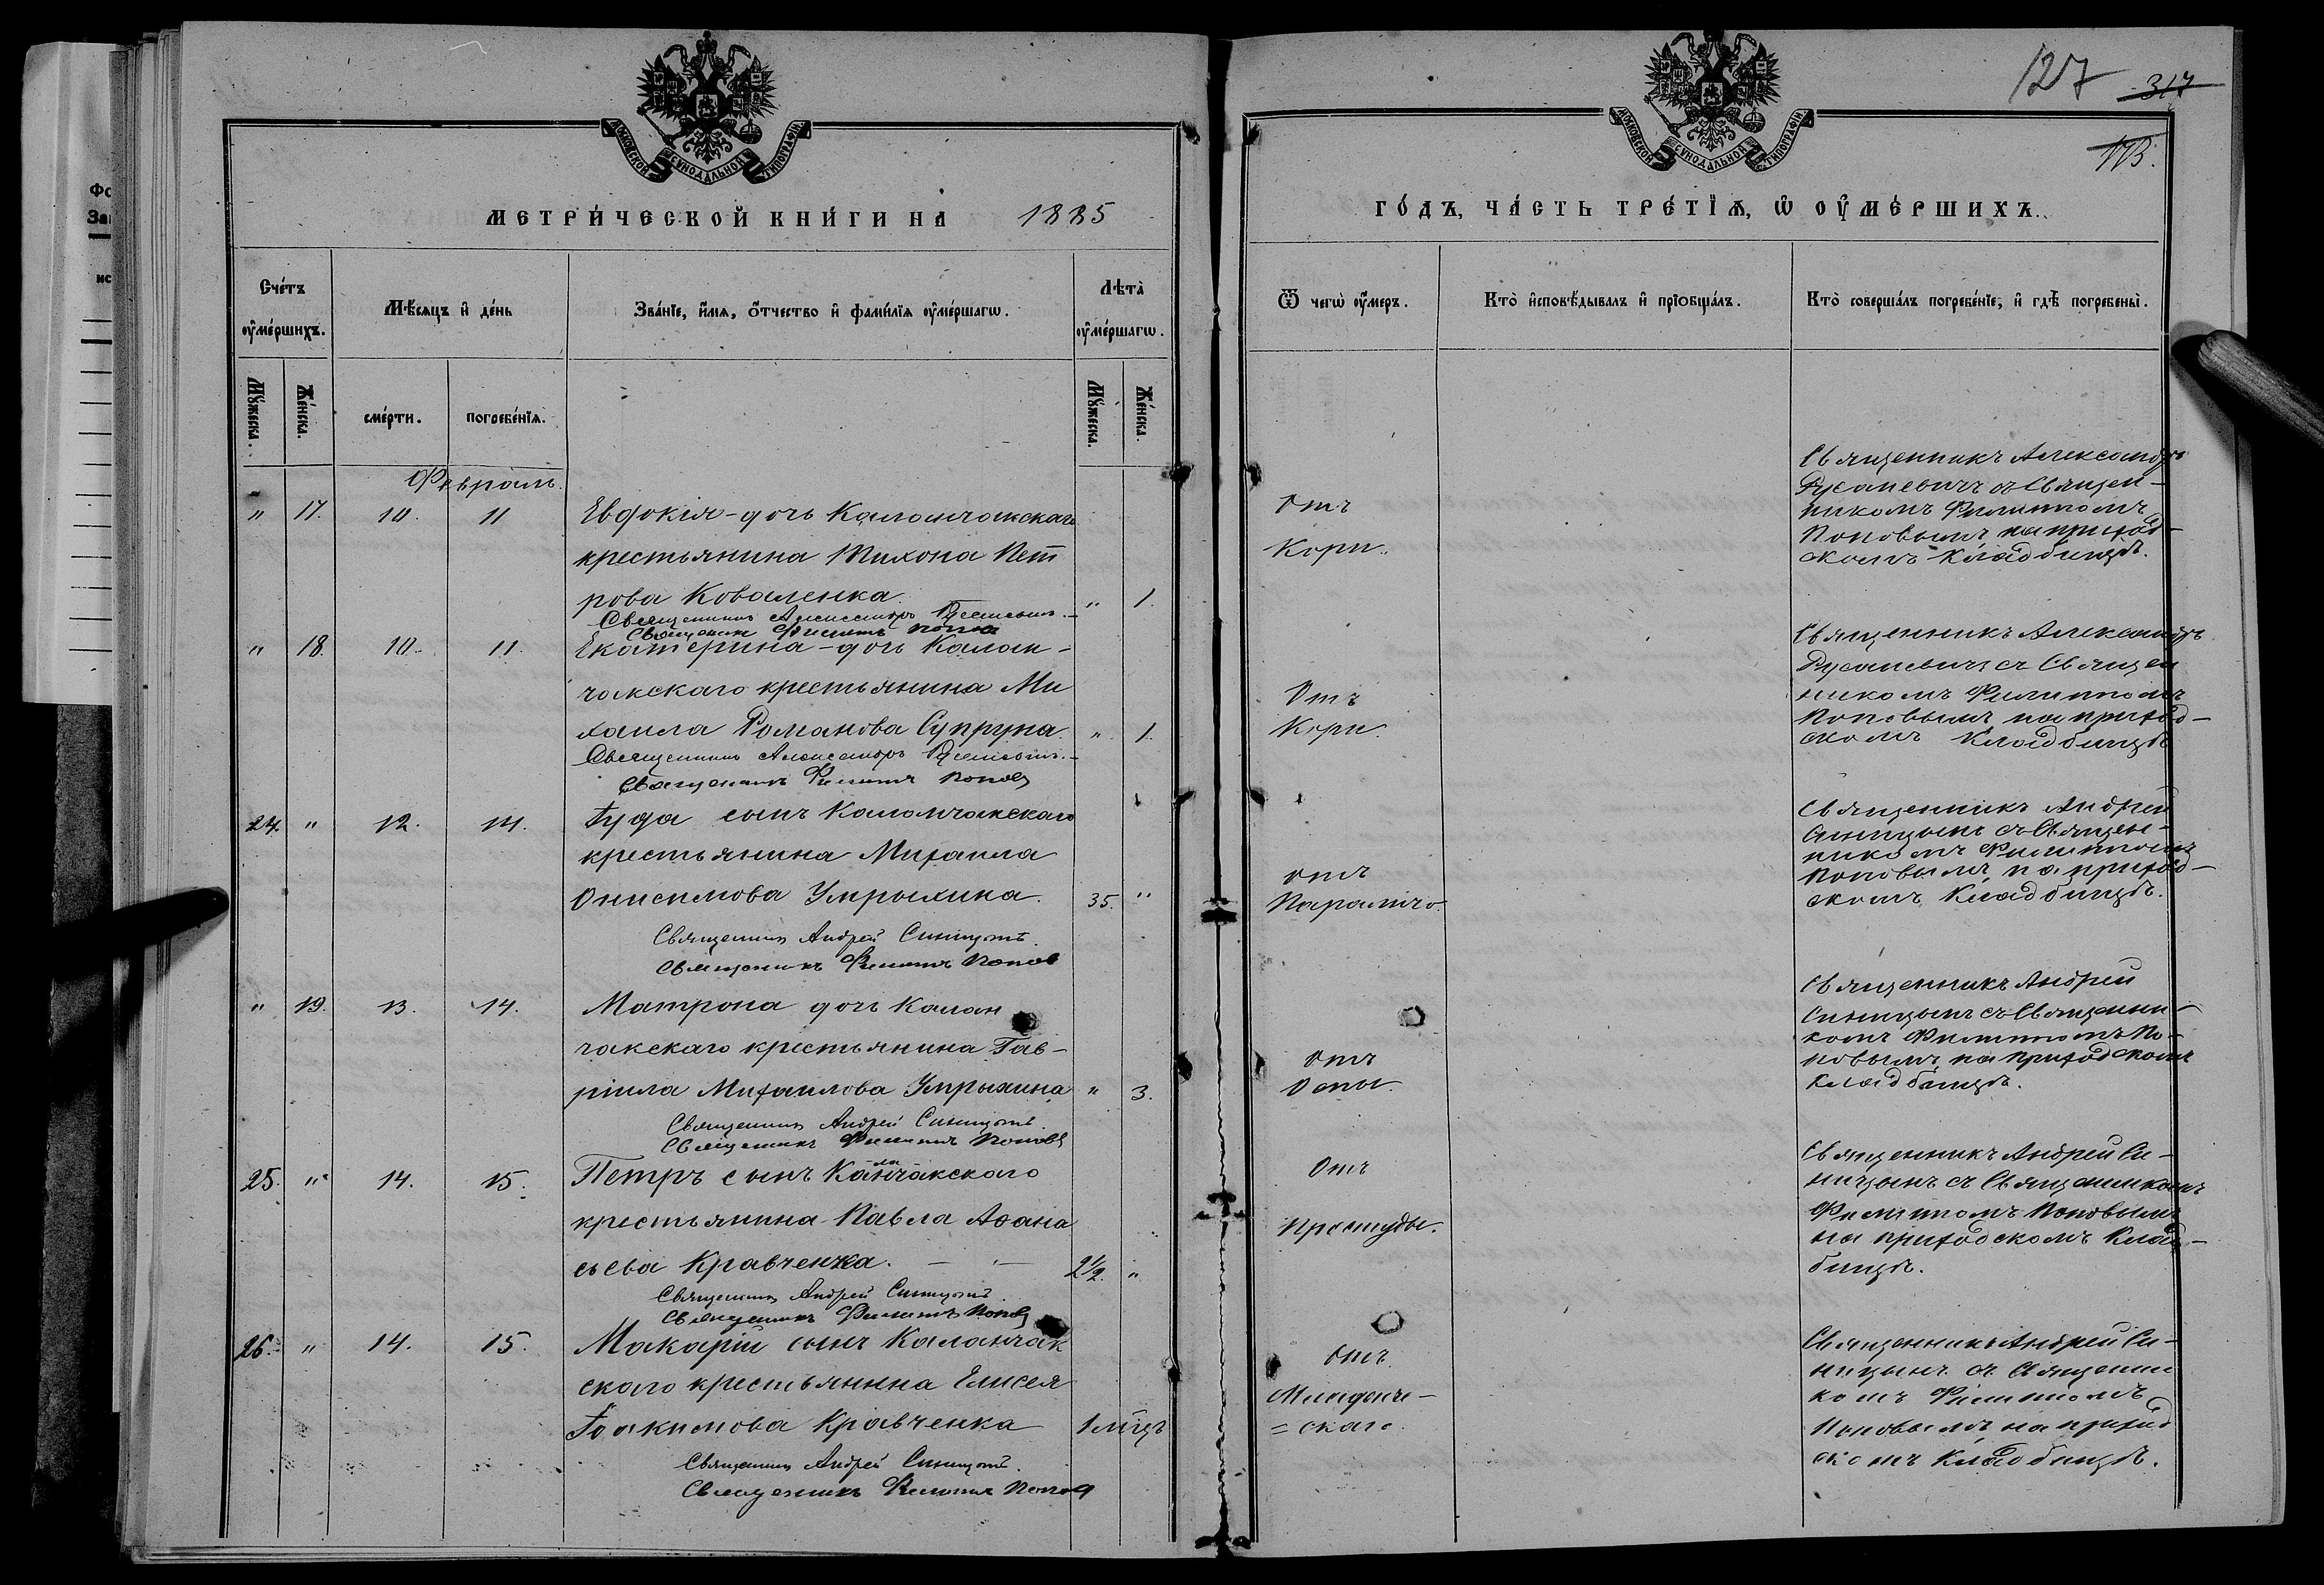 МОСКОВСКОЙ СѴНОДАЛЬНОЙ ТИПОГРАФІИ
МОСКОВСКОЙ СѴНОДАЛЬНОЙ ТИПОГРАФІИ
127 317
МЕТРИ́ЧЕСКОЙ КНИ́ГИ НА 1885
ГО́ДЪ, ЧА́СТЬ ТРЕ́ТІѦ, Ѡ ОУМЕ́РШИХЪ.
Сче́тъ оумéршихъ.
Мѣ́сяцъ и де́нь
Зва́нїе, и́мя, о́тчество и фами́лїя оумéршагѡ.
Лѣта̀ оумéршагѡ.
Ѿ чегѡ̀ оу́меръ.
Кто̀ исповѣ́дывалъ и прїобща́лъ.
Кто̀ соверша́лъ погребéнїе, и гдѣ̀ погребены̀.
Му́жеска.
Же́нска.
сме́рти.
погребе́нїя.
Му́жеска.
Же́нска.
Февраль.
" 17. 10. 11 Евдокія - дочь Каланчакскаго
крестьянина Тихона Пет
рова Коваленка " 1.
Священникъ Александръ Русаневичъ
Священникъ Филиппъ Поповъ
Отъ
Кори.
Священникъ Александръ
Русаневичъ съ Священ-
никомъ Филиппомъ
Поповымъ, на приход-
скомъ кладбищѣ.
" 18. 10. 11. Екатерина - дочь Калан-
чакскаго крестьянина Ми
хаила Романова Супруна " 1.
Священникъ Александръ Русаневичъ
Священникъ Филиппъ Поповъ
Отъ
Кори.
Священникъ Александръ
Русаневичъ съ Священ
никомъ Филиппомъ
Поповымъ на приход-
скомъ кладбищѣ
24. " 12. 14. Іуда сынъ Каланчакскаго
крестьянина Михаила
Онисимова Умрыхина. 35. "
Священникъ Андрей Синицынъ.
Священникъ Филиппъ Поповъ
отъ
Паралича.
Священникъ Андрей
Синицынъ съ Священ-
никомъ Филиппомъ
Поповымъ, на приход-
скомъ кладбищѣ.
" 19. 13. 14. Матрона дочь Калан
чакскаго крестьянина Гав-
ріила Михаилова Умрыхина " 3.
Священникъ Андрей Синицынъ.
Священникъ Филиппъ Поповъ
отъ
Оспы.
Священникъ Андрей
Синицынъ съ Священни-
комъ Филиппомъ По-
повымъ, на приходскомъ
кладбищѣ.
25. " 14. 15. Петръ сынъ Каланчакскаго
крестьянина Павла Аѳана
сьева Кравченка. 2½. "
Священникъ Андрей Синицынъ.
Священникъ Филиппъ Поповъ
Отъ
Простуды.
Священникъ Андрей Си-
ницынъ съ Священникомъ
Филиппомъ Поповымъ
на приходскомъ клад-
бищѣ.
26. " 14. 15. Макарій сынъ Каланчак
скаго крестьянина Елисея
Іоакимова Кравченка 1 мѣцъ
Священникъ Андрей Синицынъ.
Священникъ Филиппъ Поповъ
Отъ
Младенче-
=скаго.
Священникъ Андрей Си-
ницынъ съ Священни
комъ Филиппомъ
Поповымъ на приход
скомъ кладбищѣ.